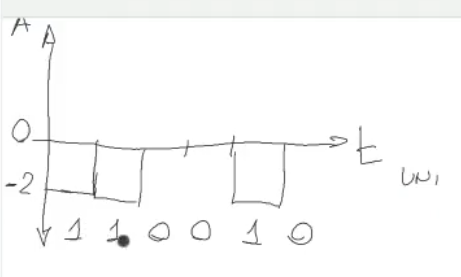 A
0
t
-2
UNI
1 1 0 0 1 0